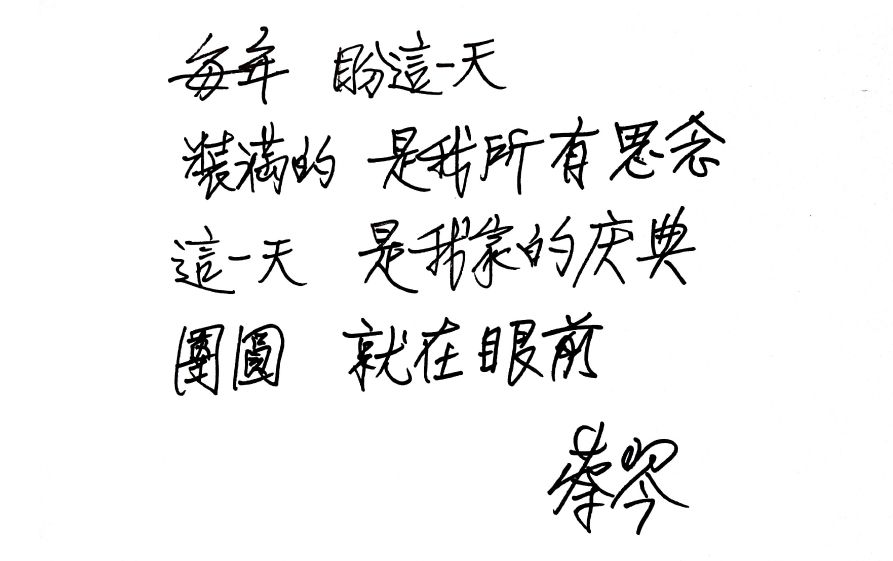 每年 盼這一天
裝滿的 是我所有思念
這一天 是我家的庆典
團圓 就在眼前
蔡琴